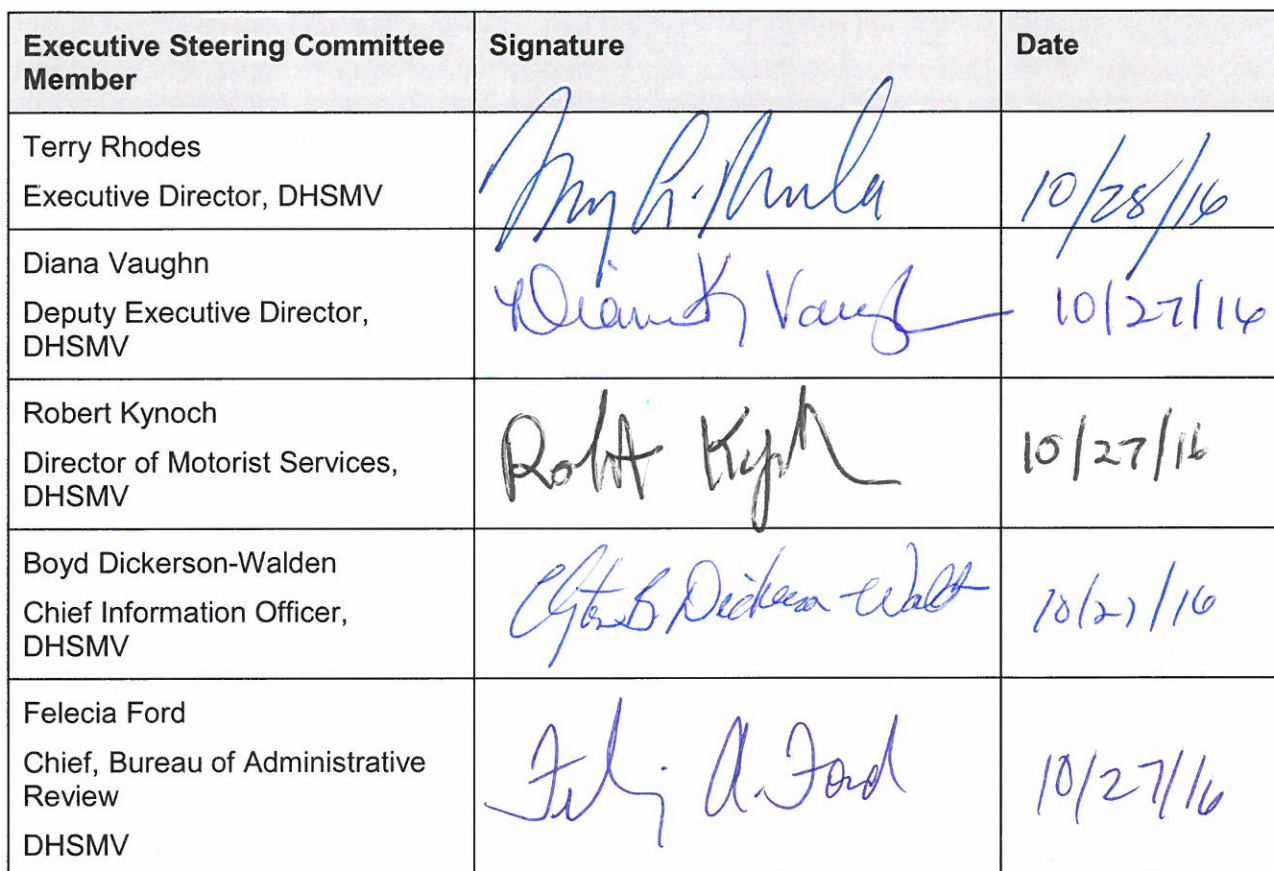 Executive Steering Committee Signature Date
Member
Terry Rhodes
Executive Director, DHSMV
10/28/16
Diana Vaughn
Deputy Executive Director,
DHSMV
Diana K Vaughn 10/27/16
Robert Kynoch
Director of Motorist Services,
DHSMV
Robert Kynoch 10/27/16
Boyd Dickerson-Walden
Chief Information Officer,
DHSMV
B. Dickerson-Walden 10/27/16
Felecia Ford
Chief, Bureau of Administrative
Review
DHSMV
A. Ford 10/27/16